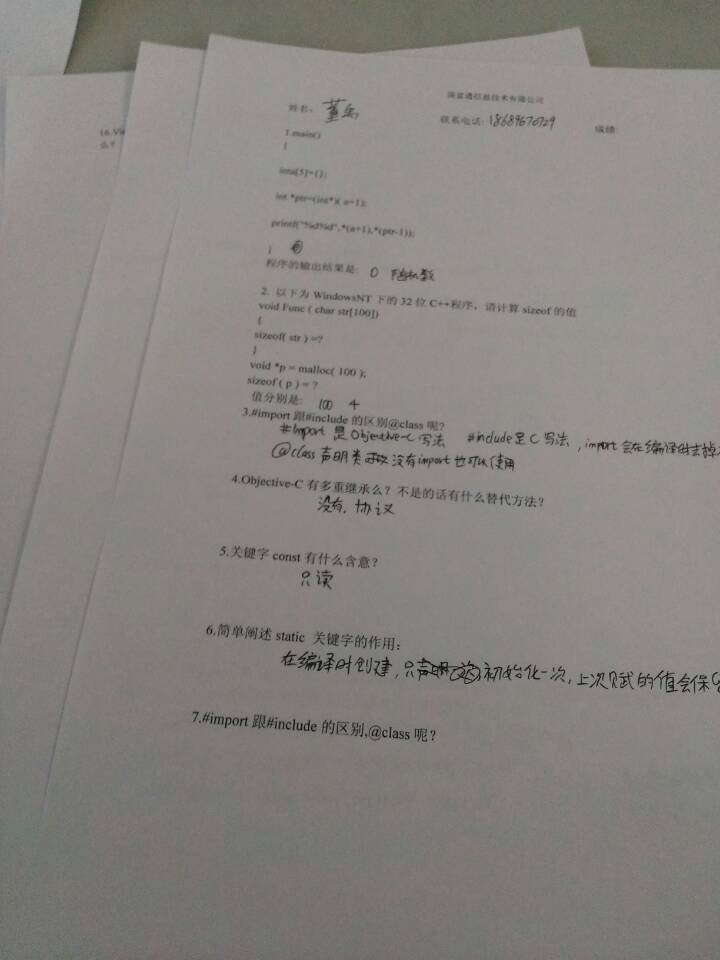 信息技术有限公司
姓名:
联系电话: 18689670729
成绩:
1.main()
{
inta[5]={};
int *ptr=(int*)( a+1);
printf("%d%d",*(a+1),*(ptr-1));
}
程序的输出结果是: 0 随机数
2. 以下为 WindowsNT 下的 32 位 C++程序,请计算 sizeof 的值
void Func ( char str[100])
{
sizeof( str ) =?
}
void *p = malloc( 100 );
sizeof ( p ) = ?
值分别是: 100 4
3.#import 跟#include 的区别@class 呢?
#import 是 Objective-C 写法 #include是 C 写法, import 会在编译时去掉
@class 声明类 没有import也可以使用
4.Objective-C 有多重继承么?不是的话有什么替代方法?
没有, 协议
5.关键字 const 有什么含意?
只读
6.简单阐述 static 关键字的作用:
在编译时创建, 只 初始化一次, 上次赋的值会保
7.#import 跟#include 的区别,@class 呢?
16.Vi
么?